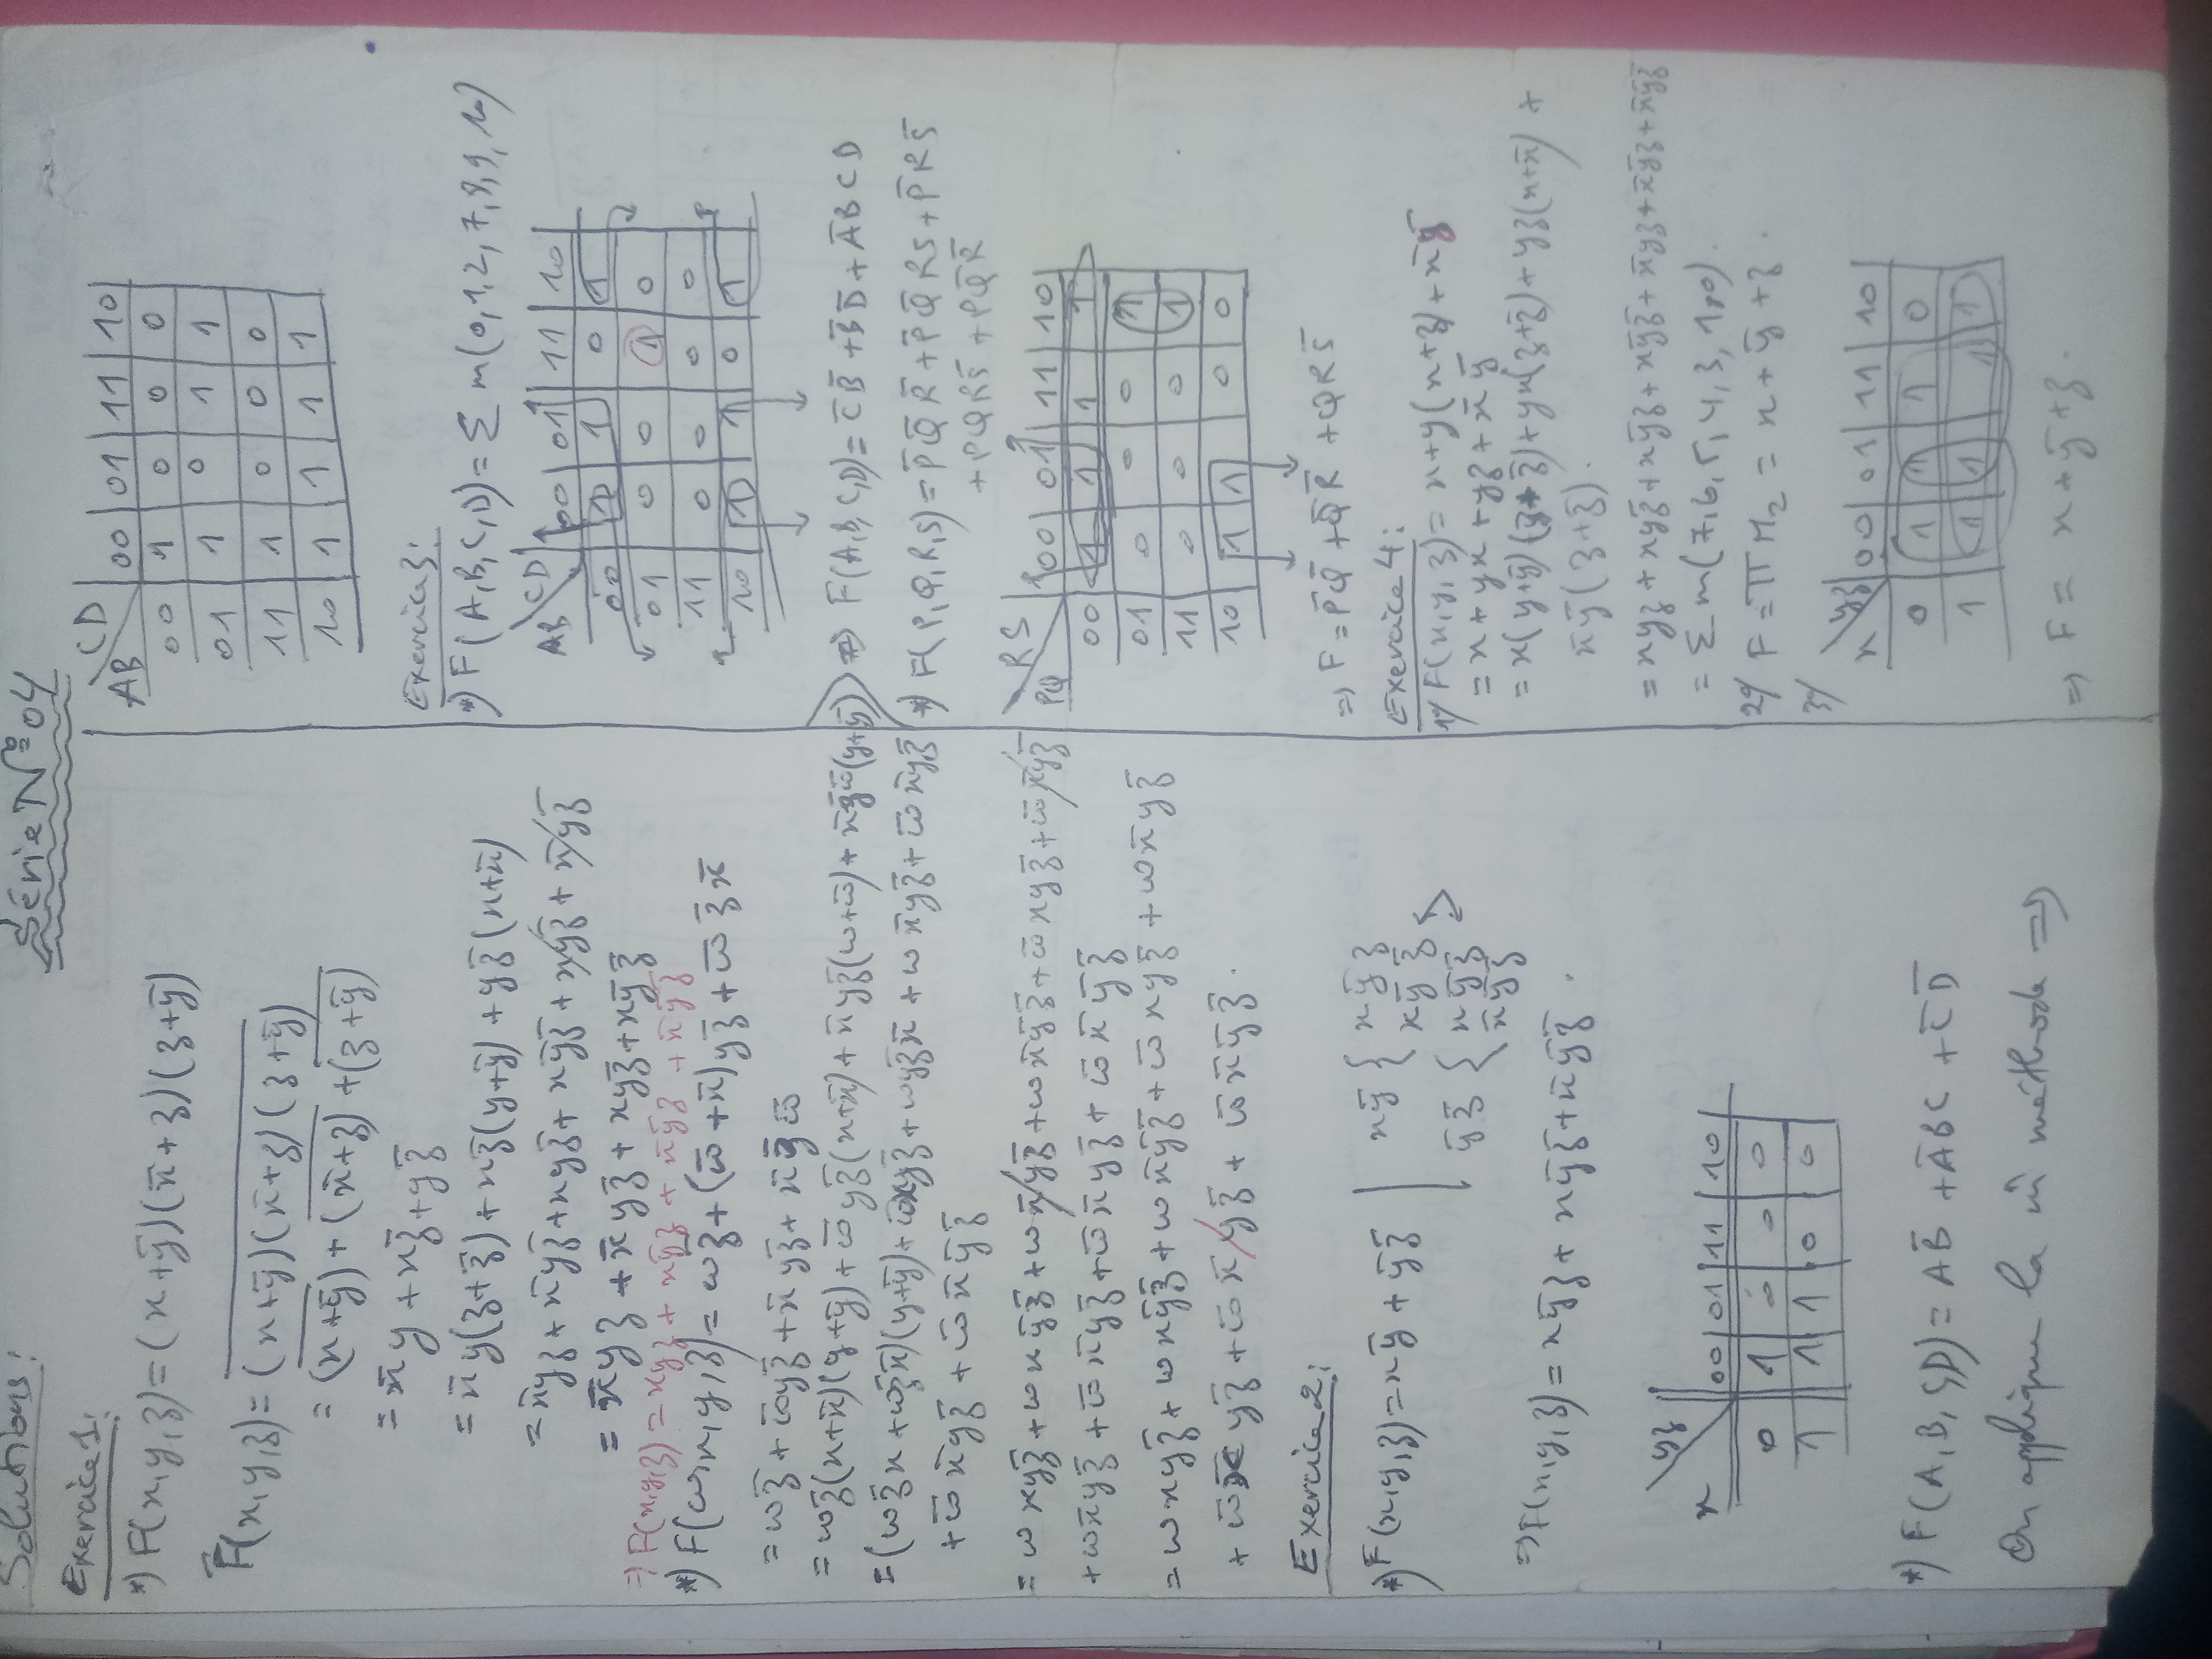 Série N°04
Solutions:
Exercice 1:
*) F(x,y,z) = (x+y̅)(x̅+z)(z+y̅)
F̅(x,y,z) = (x+y̅)(x̅+z)(z+y̅)
= (x+y̅) + (x̅+z) + (z+y̅)
= x̅y + xz̅ + yz̅
= x̅y(z+z̅) + xz̅(y+y̅) + yz̅(x+x̅)
= x̅yz + x̅yz̅ + xyz̅ + xy̅z̅ + xyz̅ + x̅yz̅
= x̅yz + x̅yz̅ + xyz̅ + xy̅z̅
=> F(x,y,z) = xyz + xy̅z + x̅y̅z + x̅y̅z̅
*) F(w,x,y,z) = wz̅ + (w̅+x̅)yz̅ + w̅z̅x̅
= wz̅ + w̅yz̅ + x̅yz̅ + x̅z̅w̅
= wz̅(x+x̅)(y+y̅) + w̅yz̅(x+x̅) + x̅yz̅(w+w̅) + x̅z̅w̅(y+y̅)
= (wz̅x + wz̅x̅)(y+y̅) + w̅xyz̅ + w̅yz̅x̅ + wx̅yz̅ + w̅x̅yz̅
+ w̅x̅yz̅ + w̅x̅y̅z̅
= wxyz̅ + wxy̅z̅ + wx̅yz̅ + wx̅y̅z̅ + w̅xyz̅ + w̅x̅yz̅
+ wx̅yz̅ + w̅x̅yz̅ + w̅x̅yz̅ + w̅x̅y̅z̅
= wxyz̅ + wxy̅z̅ + wx̅y̅z̅ + w̅xyz̅ + wx̅yz̅
+ w̅x̅yz̅ + w̅x̅y̅z̅.
Exercice 2:
*) F(x,y,z) = xy̅ + y̅z̅ | xy̅ { xy̅z
xy̅z̅
y̅z̅ { xy̅z̅
x̅y̅z̅
=> F(x,y,z) = xy̅z + xy̅z̅ + x̅y̅z̅.
x yz 00 01 11 10
0 1 0 0 0
1 1 1 0 0
*) F(A,B,C,D) = AB̅ + A̅BC + C̅D̅
On applique la m̂ méthode =>
AB CD 00 01 11 10
00 1 0 0 0
01 1 0 1 1
11 1 0 0 0
10 1 1 1 1
Exercice 3:
*) F(A,B,C,D) = Σ m(0,1,2,7,8,9,10)
AB CD 00 01 11 10
00 1 1 0 1
01 0 0 1 0
11 0 0 0 0
10 1 1 0 1
=> F(A,B,C,D) = C̅B̅ + B̅D̅ + A̅BCD
*) F(P,Q,R,S) = P̅Q̅R̅ + P̅Q̅RS + P̅RS̅
+ PQRS̅ + PQ̅R̅
PQ RS 00 01 11 10
00 1 1 1 1
01 0 0 0 1
11 0 0 0 1
10 1 1 0 0
=> F = P̅Q̅ + Q̅R̅ + QRS̅
Exercice 4:
1°/ F(x,y,z) = x + y(x+z) + x̅y̅
= x + yx + yz + x̅y̅
= x(y+y̅)(z+z̅) + yx(z+z̅) + yz(x+x̅) +
x̅y̅(z+z̅).
= xyz + xyz̅ + xy̅z + xy̅z̅ + x̅yz + x̅y̅z + x̅y̅z̅
= Σ m(7,6,5,4,3,1,0).
2°/ F = Π M₂ = x + y̅ + z.
3°/
x yz 00 01 11 10
0 1 1 1 0
1 1 1 1 1
=> F = x + y̅ + z.